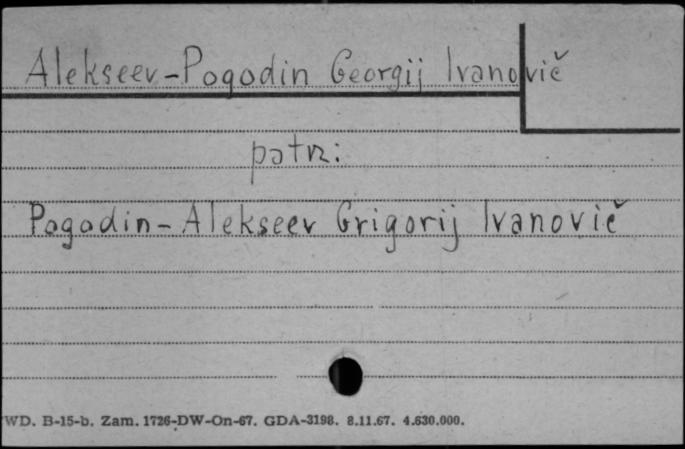 Alekseev-Pogodin Georgij Ivanovič
patrz:
Pogodin-Alekseev Grigorij Ivanovič
WD. B-15-b. Zam. 1726-DW-On-67. GDA-3198. 8.11.67. 4.630.000.